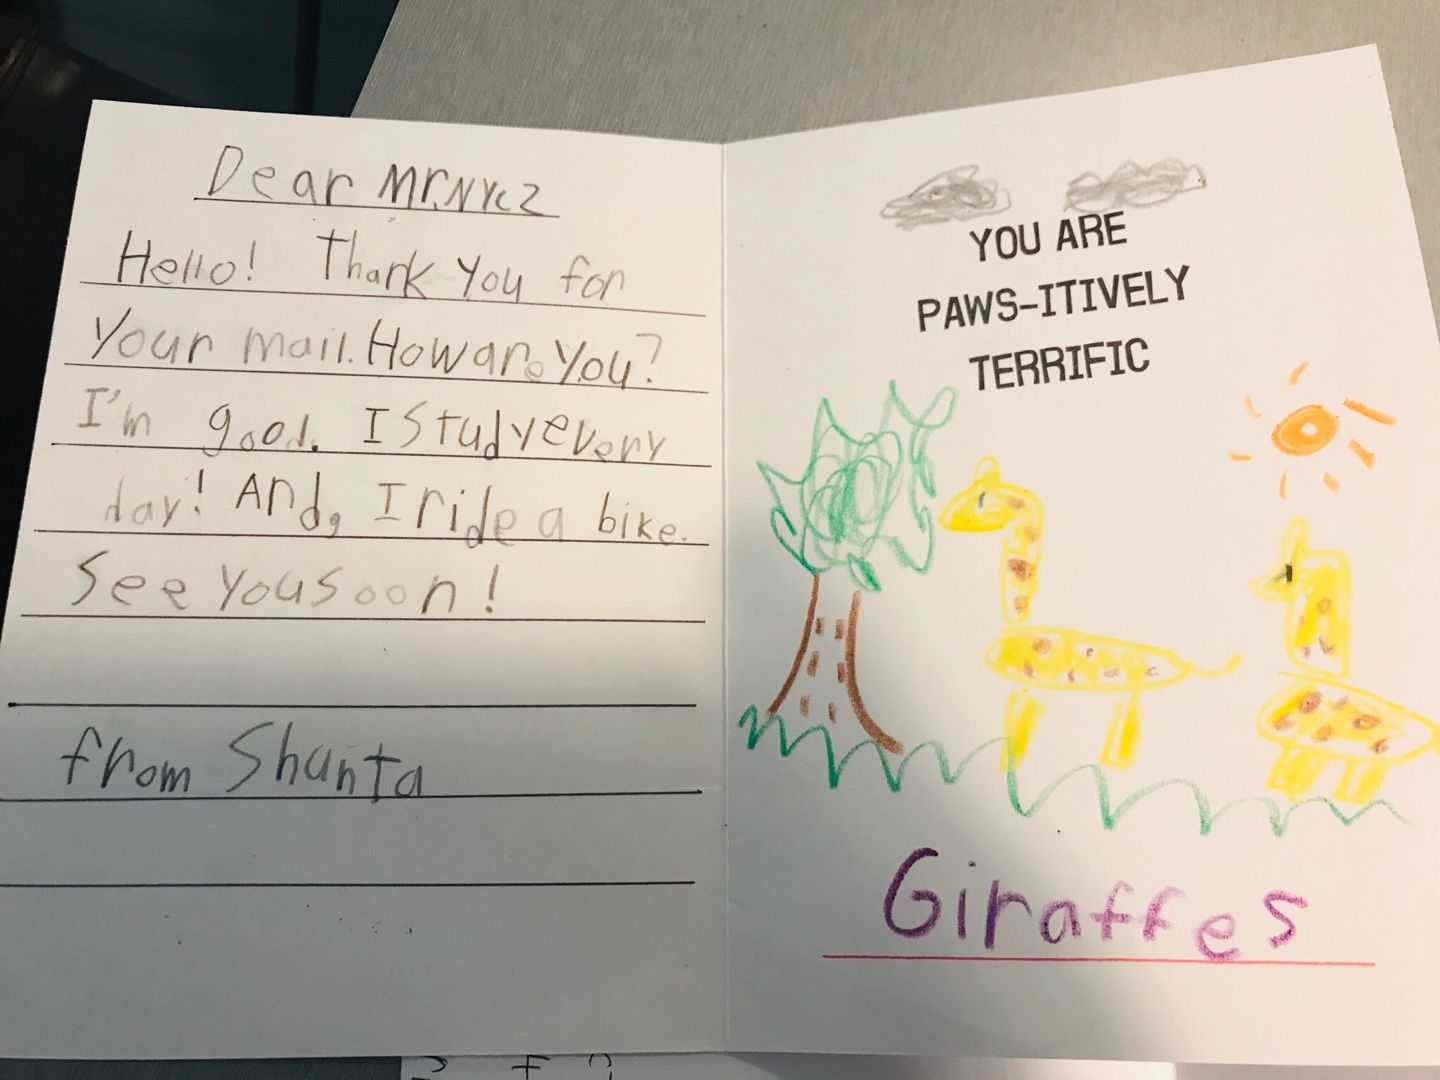 Dear Mr. Nycz
Hello! Thank you for
your mail. How are you?
I'm good. I study every
day! And, I ride a bike.
See you soon!
from Shanta
YOU ARE
PAWS-ITIVELY
TERRIFIC
Giraffes